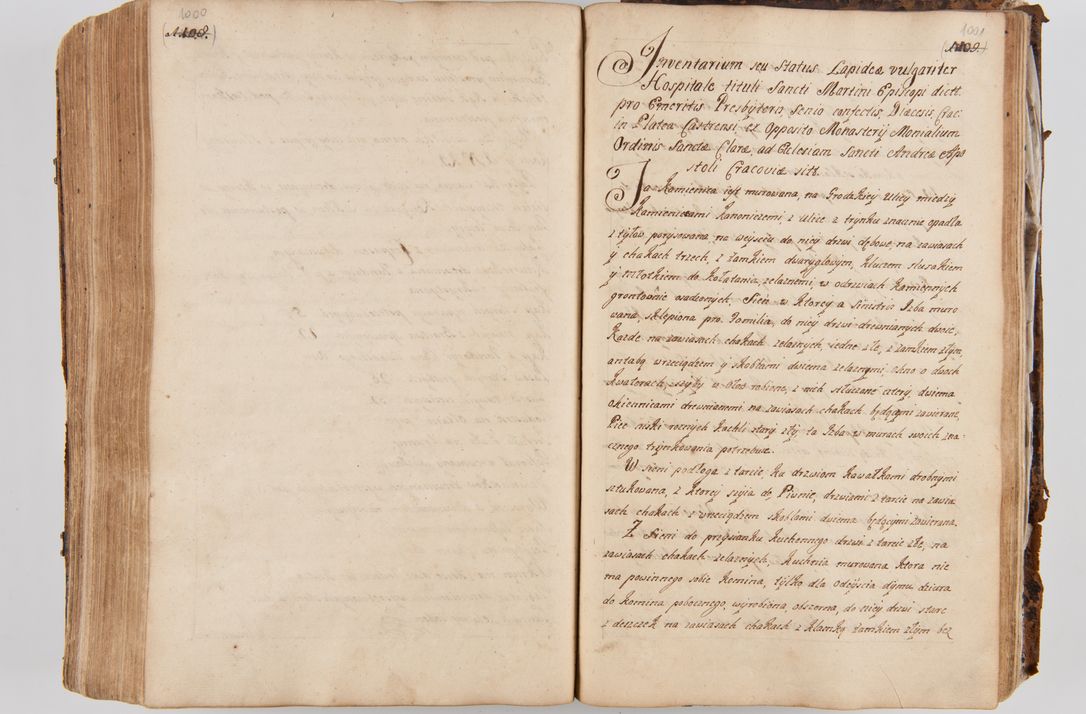 1000
1001
Inventarium seu Status Lapideæ vulgariter
Hospitale tituli Sancti Martini Episcopi dictt
pro Emeritis Presbyteris senio confectis, Diæcesis Crac:
in Platea Castrensi ex Opposito Monasterij Monialium
Ordinis Sanctæ Claræ, ad Ecclesiam Sancti Andreæ Apo
stoli Cracoviæ sitt.
Ta Kamienica iest murowana, na Grodzkiey ulicy między
Kamienicami kanonicznemi, z ulice z trynku znacznie opadła
z tyłow porysowana, na weyściu do niey drzwi dębowe, na zawiasach
y chakach trzech, z zamkiem dwuryglowym, kluczem slusakiem
y młotkiem do kołatania, zelaznemi, w odrzwiach kamiennych
grontownie osadzonych. Sień w ktorey a sinistris Izba muro
wana, sklepiona pro Familia, do niey drzwi drewnianych dwoie,
Kazde na zawiasach chakach zelaznych, iedne złe, z zamkiem złym,
antabą wrzeciądzem y skoblami dwiema zelaznymi, okno o dwoch
kwaterach, szyby w ołow robione, z nich stłuczone cztery, dwiema
okiennicami drewnianemi na zawiasach chakach będącymi zawierane,
Piec niski roznych kachli stary zły ta Izba w murach swoich zna
cznego trynkowania potrzebuie.
W sieni podłoga z tarcic, ku drzwiom kawałkami drobnymi
sztukowana, z ktorey szyia do Piwnic, drzwiami z tarcic na zawia
sach chakach z wrzeciądzem skoblami dwiema będącymi zawierana.
Z Sieni do przysianku kuchennego drzwi z tarcic złe, na
zawiasach chakach zelaznych, kuchnia murowana ktora nie
ma powinnego sobie komina, tylko dla odeyscia dymu dziura
do komina pobocznego, wyrobiona, obszerna, do niey drzwi stare
z deszczek na zawiasach chakach z klamką zamkiem złym bez